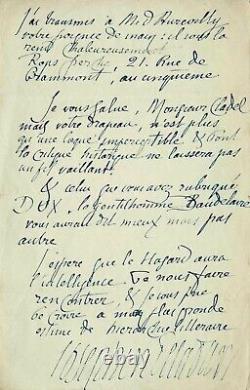 J'ai transmis à M. d'Aurevilly
votre poignée de main ; il vous la
rend chaleureusement
Rops perche, 21. Rue de
Grammont, au cinquième
Je vous salue, Monsieur Cladel
mais votre drapeau, n'est plus
qu'une loque imperceptible & dont
la critique historique ne laissera pas
un fil vaillant
& celui que vous avez rubriqué
DUX, le gentilhomme Baudelaire
vous aurait dit mieux mais pas
autre
J'espère que le Hazard aura
l'intelligence de nous faire
rencontrer, & je vous prie
de croire à ma plus grande
estime de hiérarchie littéraire
Josephin Peladan